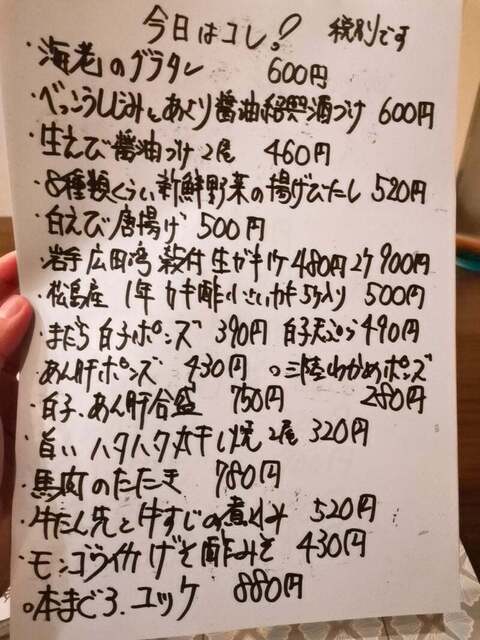 今日はコレ! 税別です
・海老のグラタン 600円
・べっこうしじみとあさり醤油紹興酒つけ 600円
・生えび醤油つけ2尾 460円
・8種類くらい新鮮野菜の揚げびたし 520円
・白えび唐揚げ 500円
・岩手広田湾殻付生ガキ1ケ480円2ケ900円
・松島産 1年カキ酢小さいカキ5ケ入り 500円
・まだら白子ポンズ 390円 白子天ぷら490円
・あん肝ポンズ 430円 ○三陸わかめポンズ 280円
・白子、あん肝合盛 750円
・旨いハタハタ丸干し焼2尾 320円
・馬肉のたたき 780円
・牛たん先と牛すじの煮込み 520円
・モンゴウイカげそ酢みそ 430円
○本まぐろ、ユッケ 880円